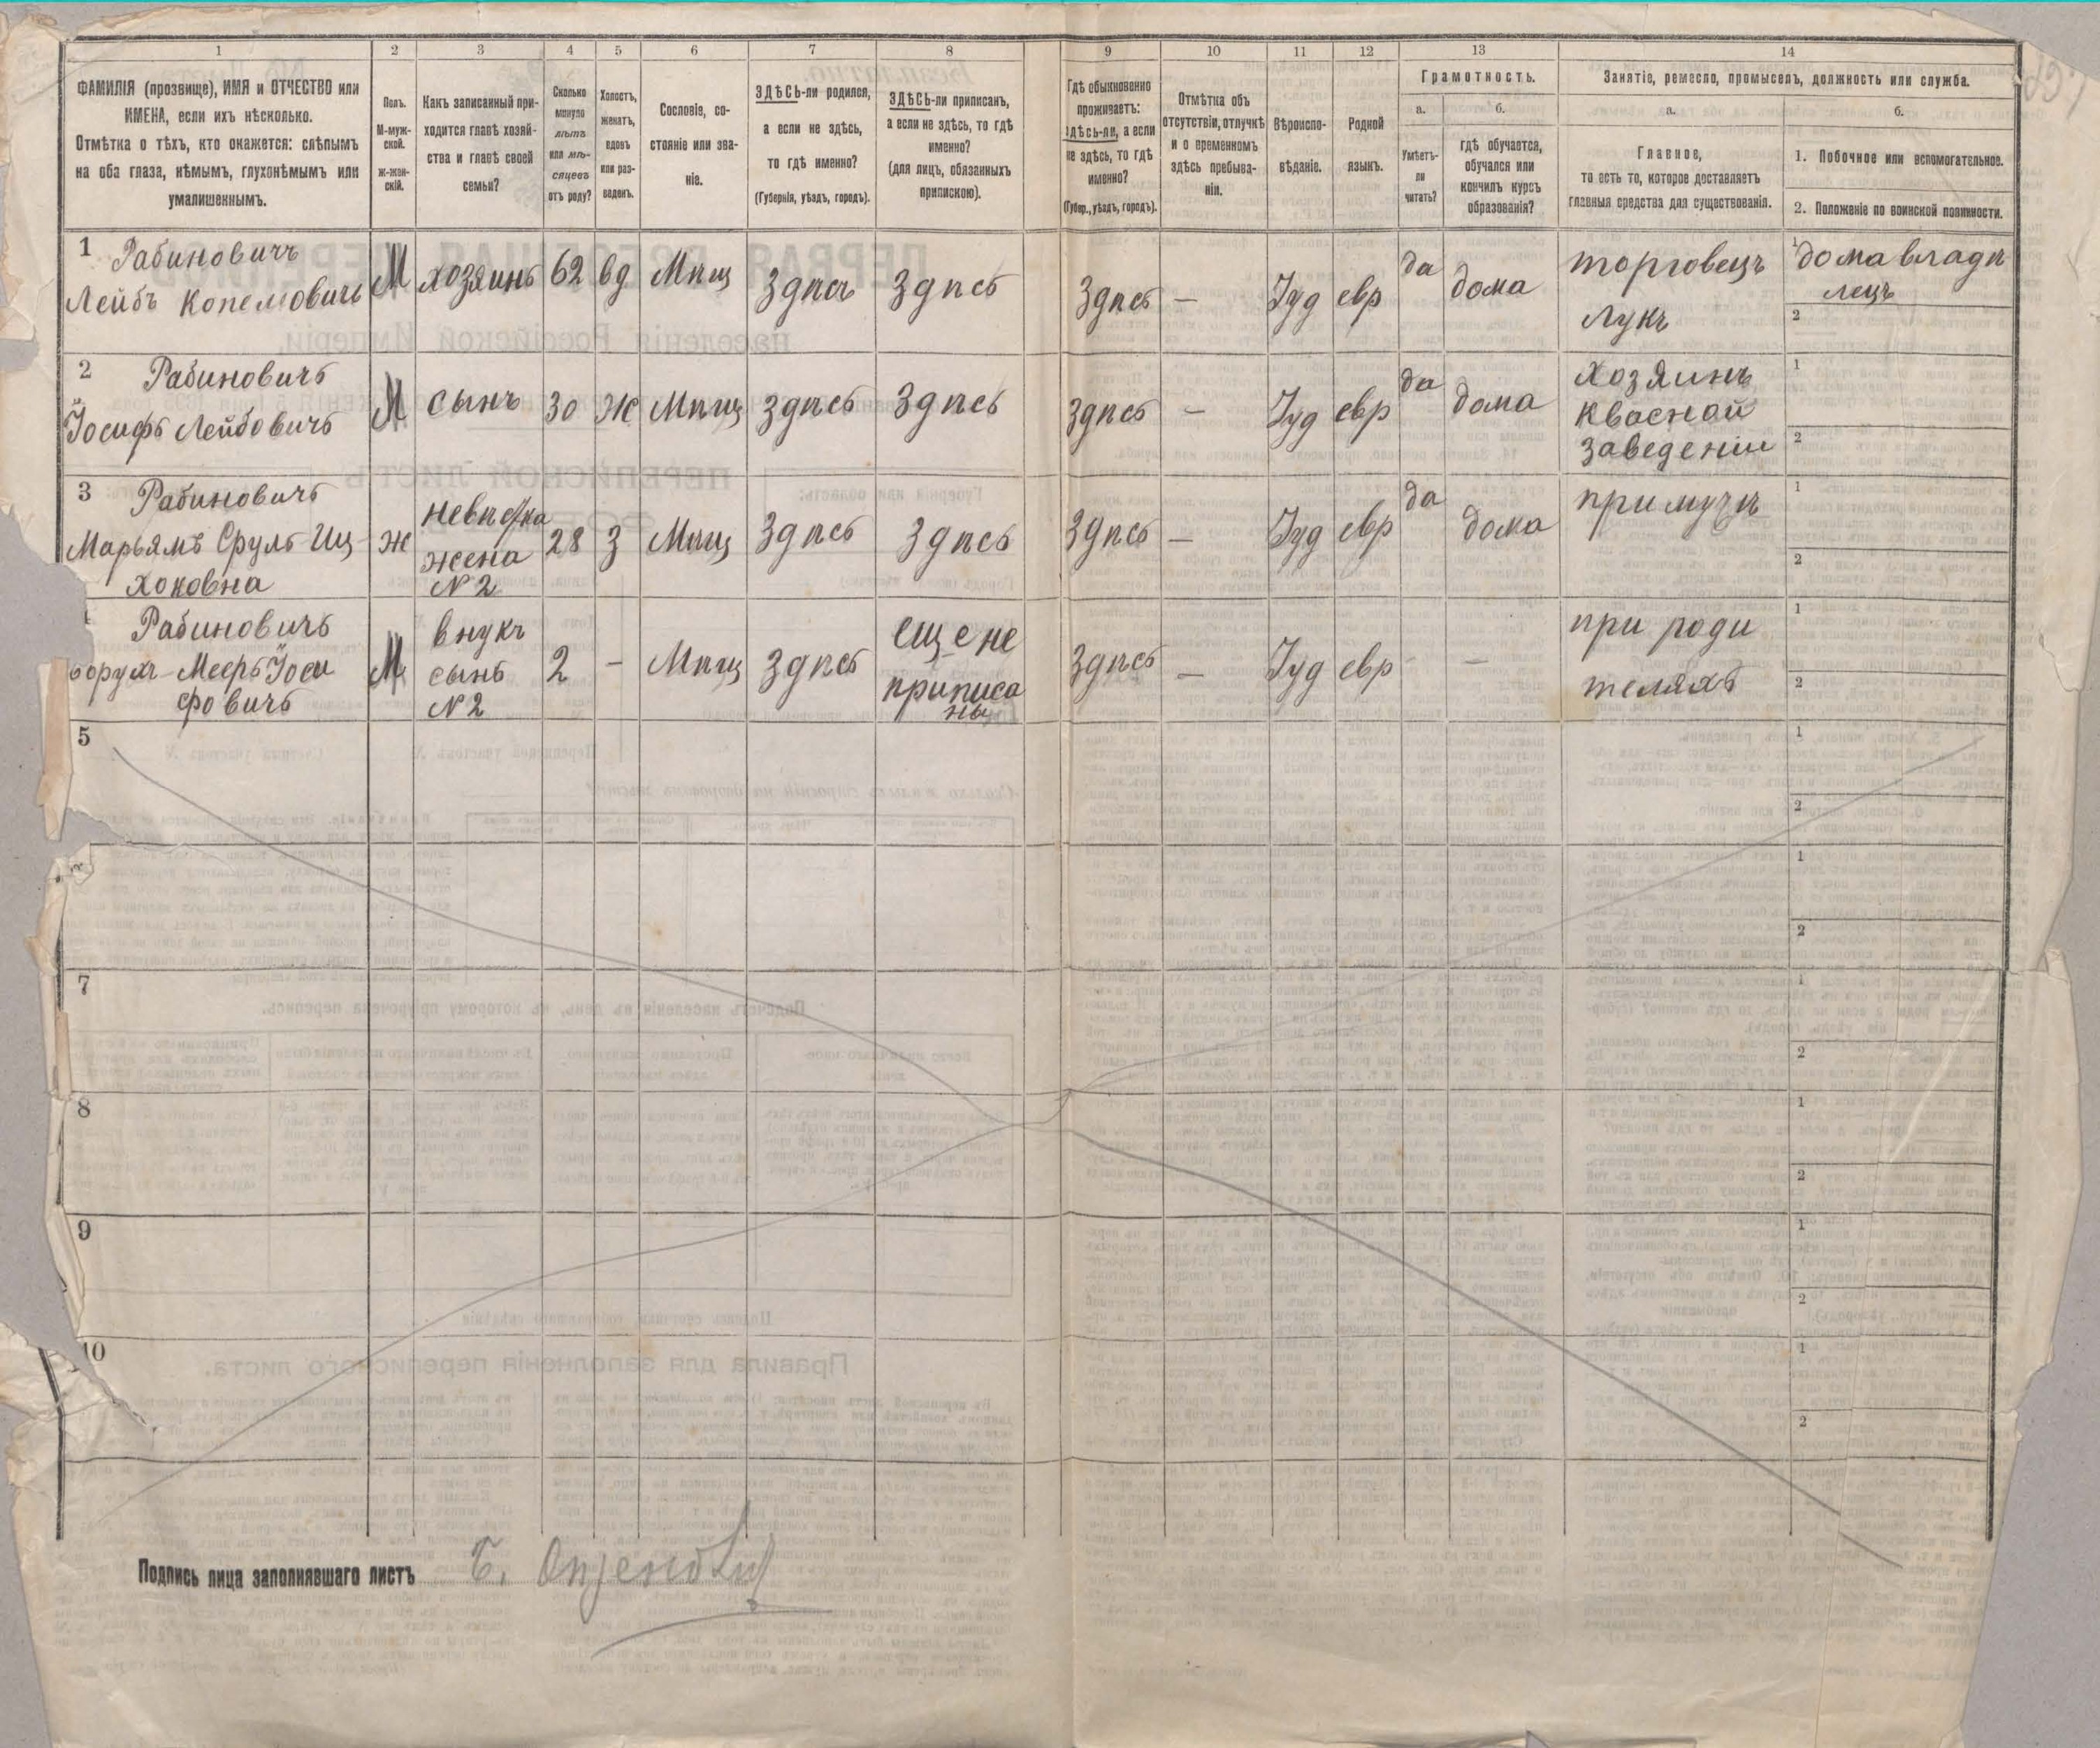 1 2 3 4 5 6 7 8 9 10 11 12 13 14
ФАМИЛІЯ (прозвище), ИМЯ и ОТЧЕСТВО или
ИМЕНА, если ихъ нѣсколько.
Отмѣтка о тѣхъ, кто окажется: слѣпымъ
на оба глаза, нѣмымъ, глухонѣмымъ или
умалишеннымъ.
Полъ.
М-муж-
ской.
ж-жен-
скій.
Какъ записанный при-
ходится главѣ хозяй-
ства и главѣ своей
семьи?
Сколько
минуло
лѣтъ
или мѣ-
сяцевъ
отъ роду?
Холостъ,
женатъ,
вдовъ
или раз-
веденъ.
Сословіе, со-
стояніе или зва-
ніе.
ЗДѢСЬ-ли родился,
а если не здѣсь,
то гдѣ именно?
(Губернія, уѣздъ, городъ).
ЗДѢСЬ-ли приписанъ,
а если не здѣсь, то гдѣ
именно?
(для лицъ, обязанныхъ
припискою).
Гдѣ обыкновенно
проживаетъ:
здѣсь-ли, а если
не здѣсь, то гдѣ
именно?
(Губер., уѣздъ, городъ).
Отмѣтка объ
отсутствіи, отлучкѣ
и о временномъ
здѣсь пребыва-
ніи.
Вѣроиспо-
вѣданіе.
Родной
языкъ.
Грамотность.
а.
Умѣетъ-
ли
читать?
б.
гдѣ обучается,
обучался или
кончилъ курсъ
образованія?
Занятіе, ремесло, промыселъ, должность или служба.
а.
Главное,
то есть то, которое доставляетъ
главныя средства для существованія.
б.
1. Побочное или вспомогательное.
2. Положеніе по воинской повинности.
1 Рабиновичъ
Лейбъ Копелювичъ
М
хозяинъ
62
вд
Мѣщ
Здѣсь
Здѣсь
Здѣсь
—
Іуд
евр
да
дома
торговецъ
лукъ
1 домавладѣ
лецъ
2
2 Рабиновичъ
Іосифъ Лейбовичъ
М
сынъ
30
Ж
Мѣщ
Здѣсь
Здѣсь
Здѣсь
—
Іуд
евр
да
дома
хозяинъ
квасной
заведеніи
1
2
3 Рабиновичъ
Марьямъ Сруль Иц
хоковна
Ж
невѣстка
жена
№ 2
28
З
Мѣщ
Здѣсь
Здѣсь
Здѣсь
—
Іуд
евр
да
дома
при мужѣ
1
2
Рабиновичъ
борухъ-Меерь Іоси
фовичъ
М
внукъ
сынъ
№ 2
2
—
Мѣщ
Здѣсь
еще не
приписа
ны
Здѣсь
—
Іуд
евр
-
—
при роди
теляхъ
1
2
5
1
2
1
2
7
1
2
8
1
2
9
1
2
10
1
2
Подпись лица заполнявшаго листъ